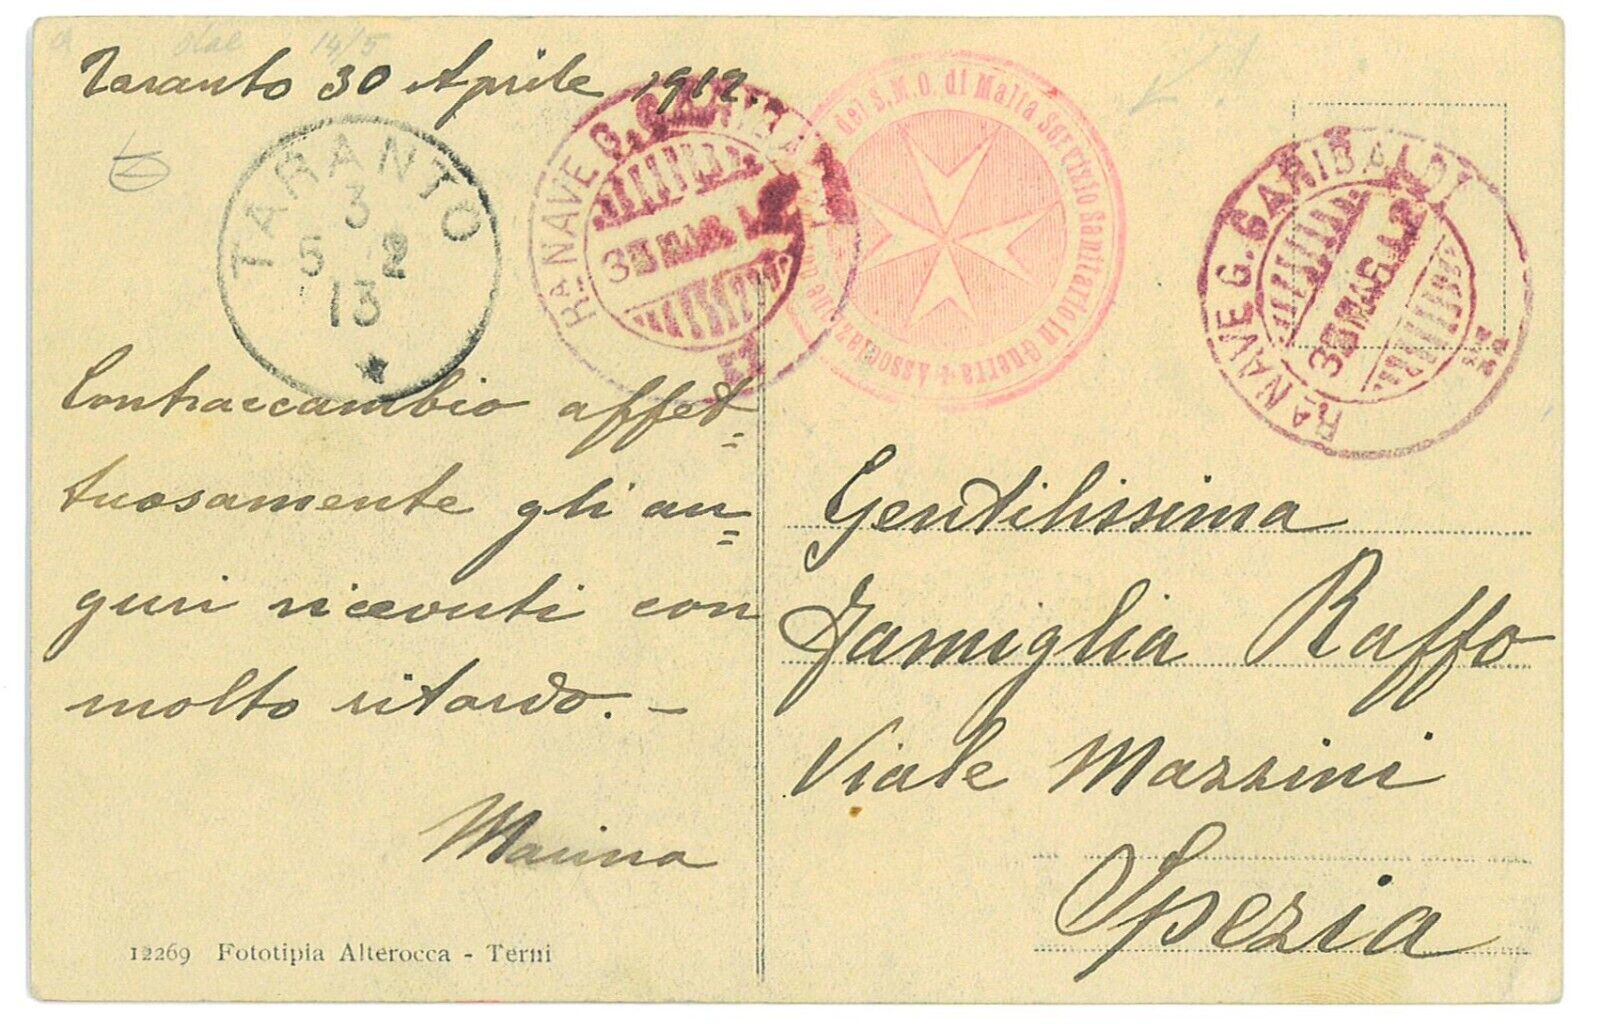 14/5
Taranto 30 Aprile 1912.
TARANTO
3
5 2
13
RA NAVE G. GARIBALDI
3 MAG. 12
Associazione del S.M.O. di Malta Servizio Sanitario in Guerra
RA NAVE G. GARIBALDI
3 MAG. 12
Contraccambio affet=
tuosamente gli au=
guri ricevuti con
molto ritardo. –
Marina
12269 Fototipia Alterocca - Terni
Gentilissima
Famiglia Raffo
Viale Mazzini
Spezia